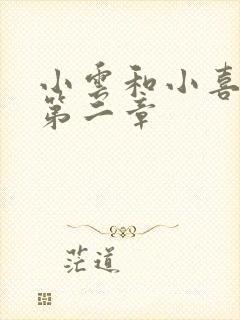 小雲和小喜
第二章
茫道